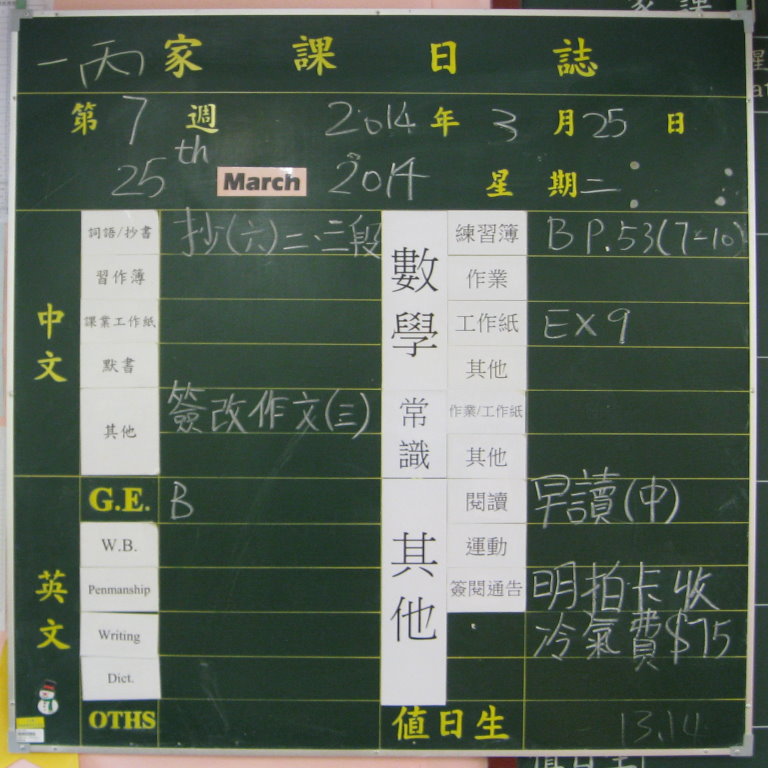 一丙 家課日誌
第7週 2014年3月25日
25th March 2014 星期二
中文
詞語/抄書 抄(六)二、三段
習作簿
課業工作紙
默書
其他 簽改作文(三)
英文
G.E. B
W.B.
Penmanship
Writing
Dict.
OTHS
數學
練習簿 B P.53(7-10)
作業
工作紙 EX 9
其他
常識
作業/工作紙
其他
其他
閱讀 早讀(中)
運動
簽閱通告 明拍卡收
冷氣費$75
值日生 13,14